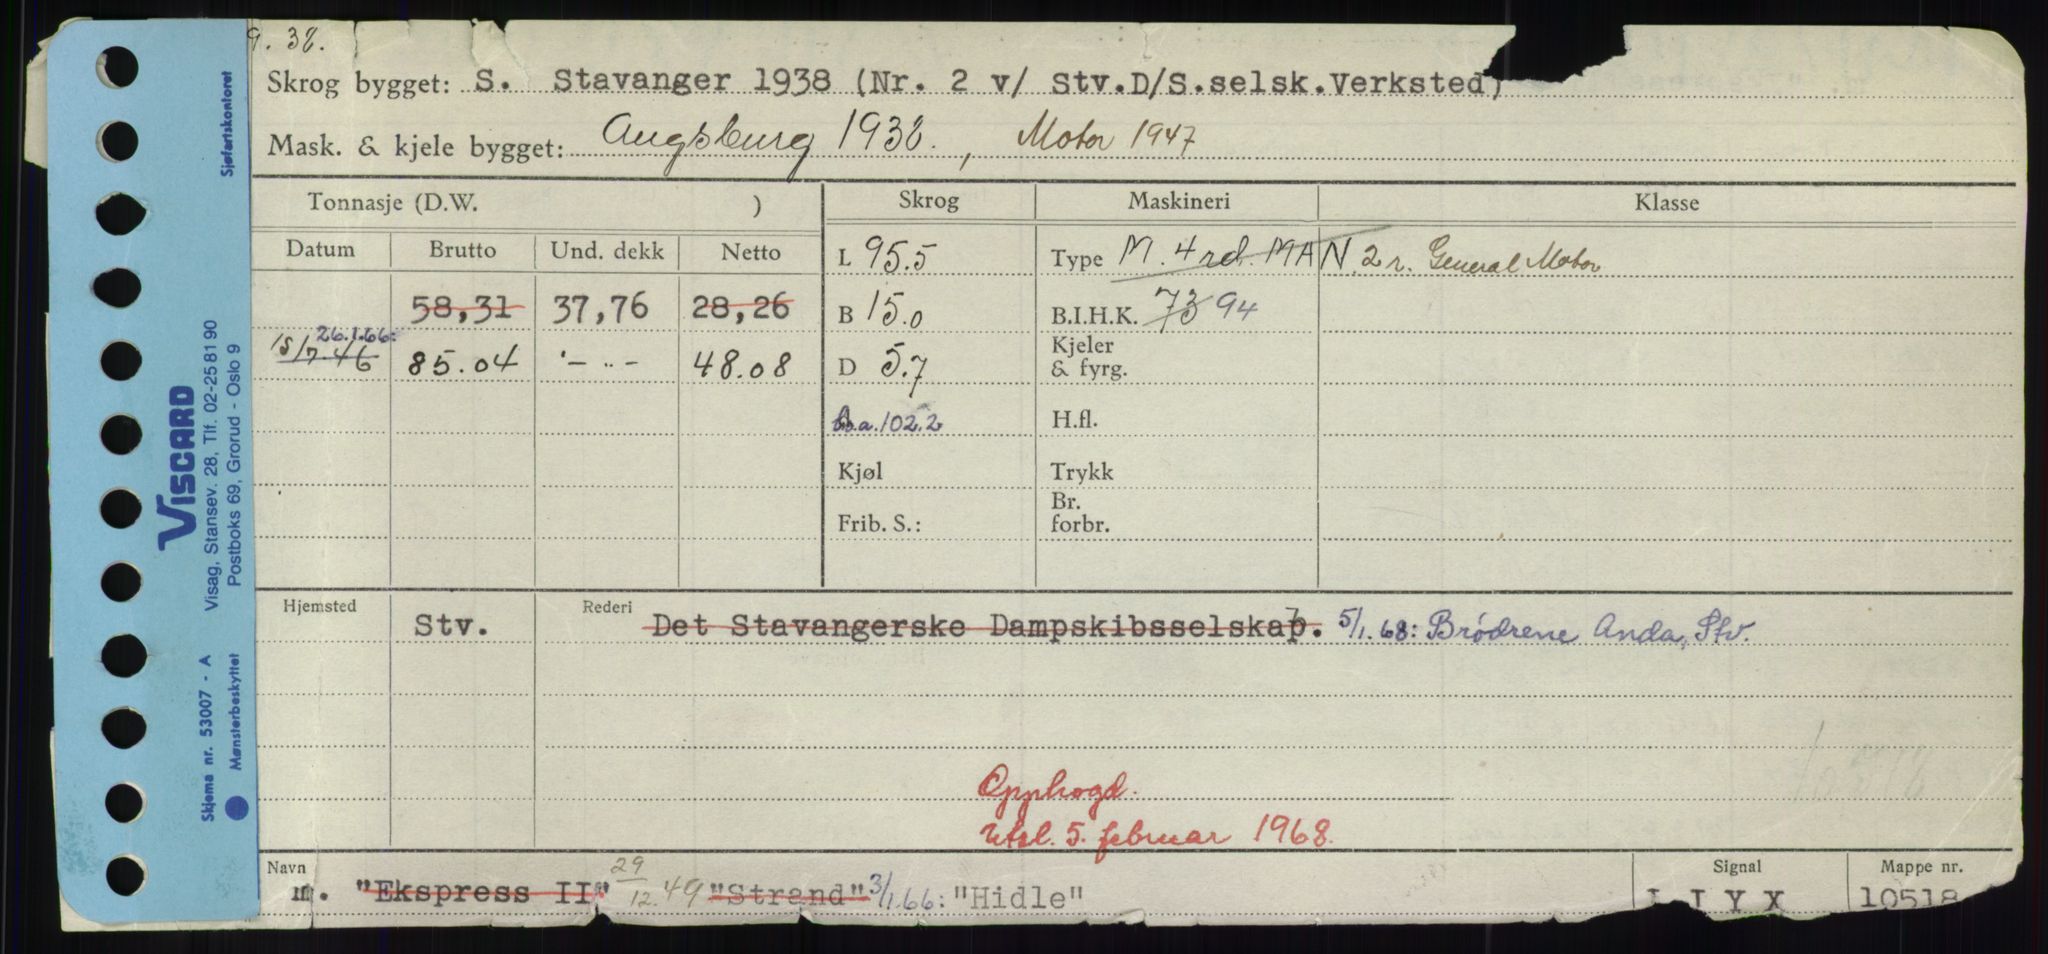 9. 38.
Skrog bygget: S. Stavanger 1938 (Nr. 2 v/ Stv.D/S.selsk.Verksted)
Mask. & kjele bygget: Augsburg 1938., Motor 1947
Tonnasje (D.W. ) Skrog Maskineri Klasse
Datum Brutto Und. dekk Netto L 95.5 Type M. 4 rd. MAN. 2 r. General Motor
58,31 37,76 28,26 B 15.0 B.I.H.K. 73 94
26.1.66:
15/7.46 85.04 -"- 48.08 D 5.7 Kjeler & fyrg.
L.a. 102.2 H.fl.
Kjøl Trykk
Frib. S.: Br. forbr.
Hjemsted Stv. Rederi Det Stavangerske Dampskibsselskap. 5/1.68: Brødrene Anda, Stv.
Opphogd.
Utsl. 5. februar 1968.
Navn Signal Mappe nr.
m. "Ekspress II" 29/12.49 "Strand" 3/1.66: "Hidle" L I Y X 10518
Sjøfartskontoret
VISCARD
Visag, Stansev. 28, Tlf. 02-25 81 90
Postboks 69, Grorud - Oslo 9
Skjema nr. 53007 - A
Mønsterbeskyttet